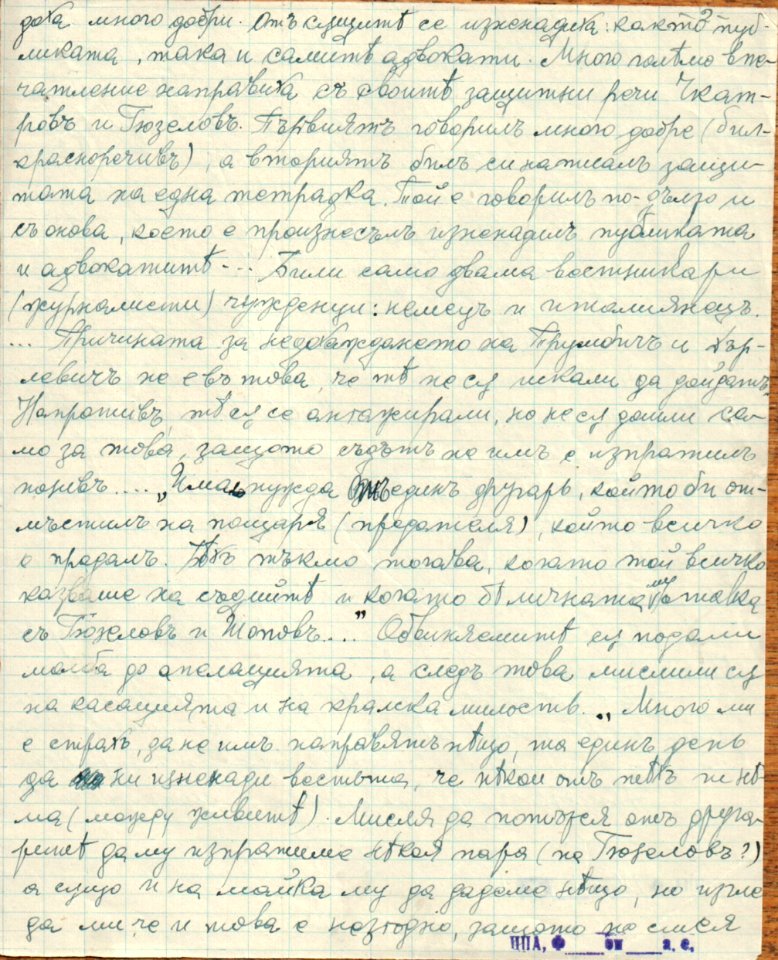 доха много добри. Отъ същитѣ се изненадиха: както пуб-
ликата, така и самитѣ адвокати. Много голѣмо впе-
чатление направиха съ своитѣ защитни речи Чкат-
ровъ и Гюзеловъ. Първиятъ говорилъ много добре (билъ
красноречивъ), а вториятъ билъ си написалъ защи-
тата на една тетрадка. Той е говорилъ по-дълго и
съ онова, което е произнесълъ изненадилъ публиката
и адвокатитѣ... Били само двама вестникари
(журналисти) чужденци: немецъ и италиянецъ.
... Причината за недохаждането на Трумбичъ и
левичъ не е въ това, че тѣ не сѫ искали да дойдатъ.
Напротивъ, тѣ сѫ се ангажирали, но не сѫ дошли са-
мо за това, защото сѫдътъ не имъ е изпратилъ
позивъ.... „Има нужда отъ единъ другарь, който би от-
мъстилъ на пощаря (предателя), който всичко
е предалъ. Бѣхъ тъкмо тогава, когато той всичко
казваше на сѫдиитѣ и когато бѣ личната му ставка
съ Гюзеловъ и Шоповъ...." Обвиняемитѣ сѫ подали
молба до апелацията, а следъ това мислили сѫ
на касацията и на кралска милость. „Много ми
е страхъ, да не имъ направятъ нѣщо, та единъ день
да ни изненади вестьта, че нѣкои отъ тѣхъ ги нѣ-
ма (между живитѣ). Мисля да потърся отъ другa-
ритѣ да му изпратиме нѣкоя пара (на Гюзеловъ?)
а също и на майка му да дадеме нѣщо, но изгле-
да ми че и това е незгодно, защото не смея
ЦПА, Ф оп а. е.